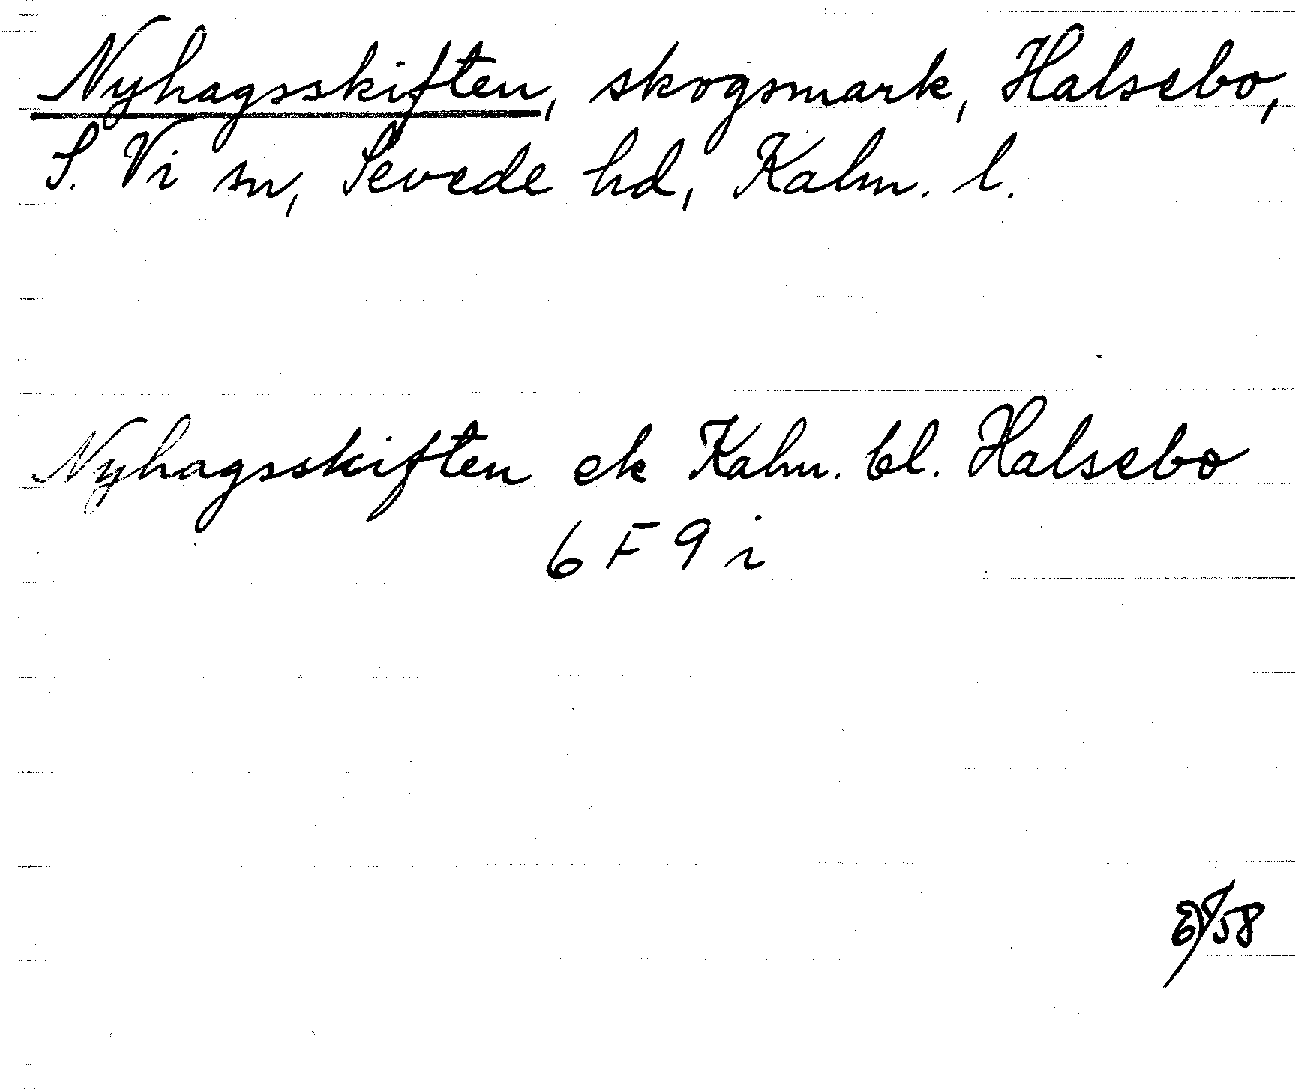 Nyhagsskiften, skogsmark, Halsebo,
S. Vi sn, Sevede hd, Kalm. l.
Nyhagsskiften ek Kalm. bl. Halsebo
6 F 9 i